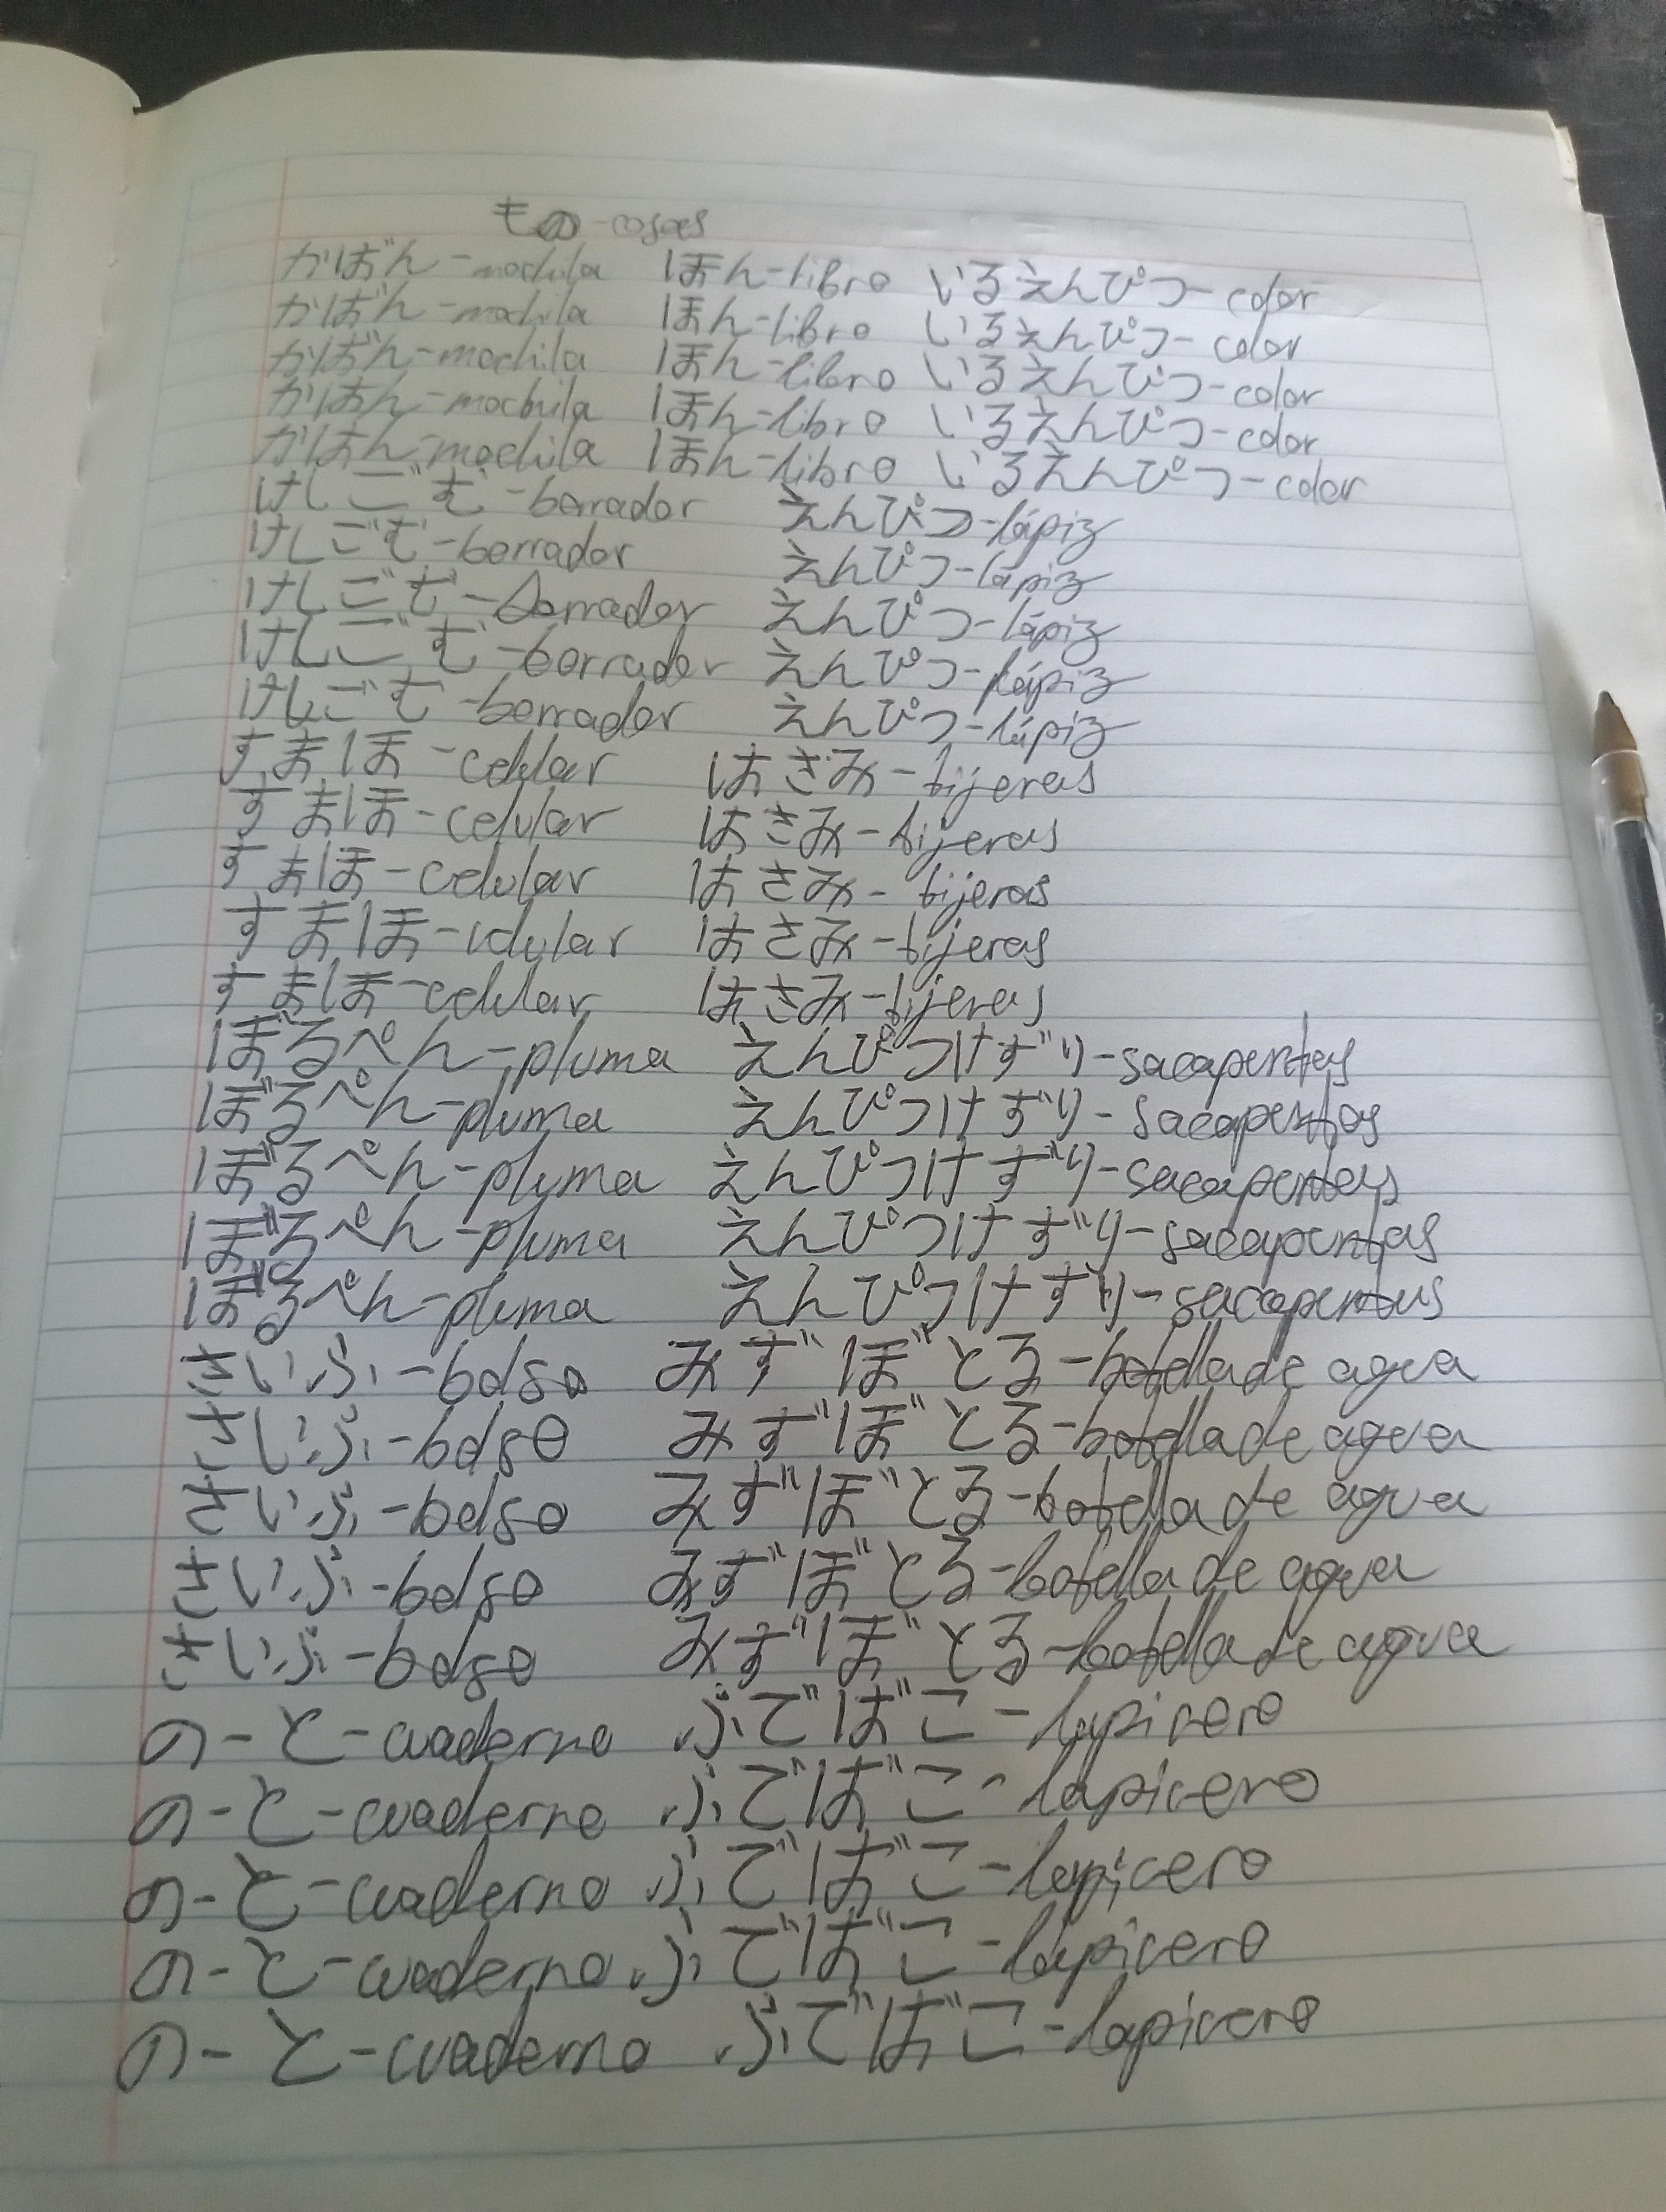 もの-cosas
かばん-mochila ほん-libro いるえんぴつ-color
かばん-mochila ほん-libro いるえんぴつ-color
かばん-mochila ほん-libro いるえんぴつ-color
かばん-mochila ほん-libro いるえんぴつ-color
かばん-mochila ほん-libro いるえんぴつ-color
けしごむ-borrador えんぴつ-lápiz
けしごむ-borrador えんぴつ-lápiz
けしごむ-borrador えんぴつ-lápiz
けしごむ-borrador えんぴつ-lápiz
けしごむ-borrador えんぴつ-lápiz
すまほ-celular はさみ-tijeras
すまほ-celular はさみ-tijeras
すまほ-celular はさみ-tijeras
すまほ-celular はさみ-tijeras
すまほ-celular はさみ-tijeras
ぼるぺん-pluma えんぴつけずり-sacapuntas
ぼるぺん-pluma えんぴつけずり-sacapuntas
ぼるぺん-pluma えんぴつけずり-sacapuntas
ぼるぺん-pluma えんぴつけずり-sacapuntas
ぼるぺん-pluma えんぴつけずり-sacapuntas
さいふ-bolso みずぼとる-botella de agua
さいふ-bolso みずぼとる-botella de agua
さいふ-bolso みずぼとる-botella de agua
さいふ-bolso みずぼとる-botella de agua
さいふ-bolso みずぼとる-botella de agua
の-と-cuaderno ふでばこ-lapicero
の-と-cuaderno ふでばこ-lapicero
の-と-cuaderno ふでばこ-lapicero
の-と-cuaderno ふでばこ-lapicero
の-と-cuaderno ふでばこ-lapicero